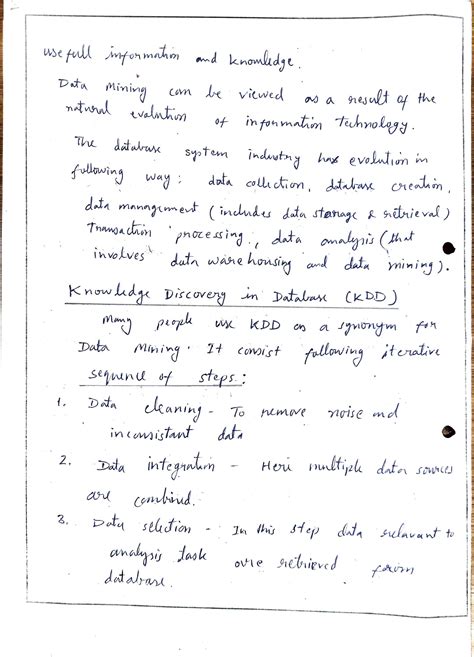 usefull information and knowledge.
Data Mining can be viewed as a result of the
natural evalution of information Technology.
The database system industry has evolution in
following way: data collection, database creation,
data management (includes data storage & retrieval)
Transaction processing, data analysis (that
involves data ware housing and data mining).
Knowledge Discovery in Database (KDD)
Many people use KDD as a synonym for
Data Mining. It consist following iterative
sequence of steps:
1. Data cleaning - To remove noise and
inconsistant data
2. Data integration - Here multiple data sources
are combined.
3. Data selection - In this step data relavant to
analysis task are retrieved from
database.